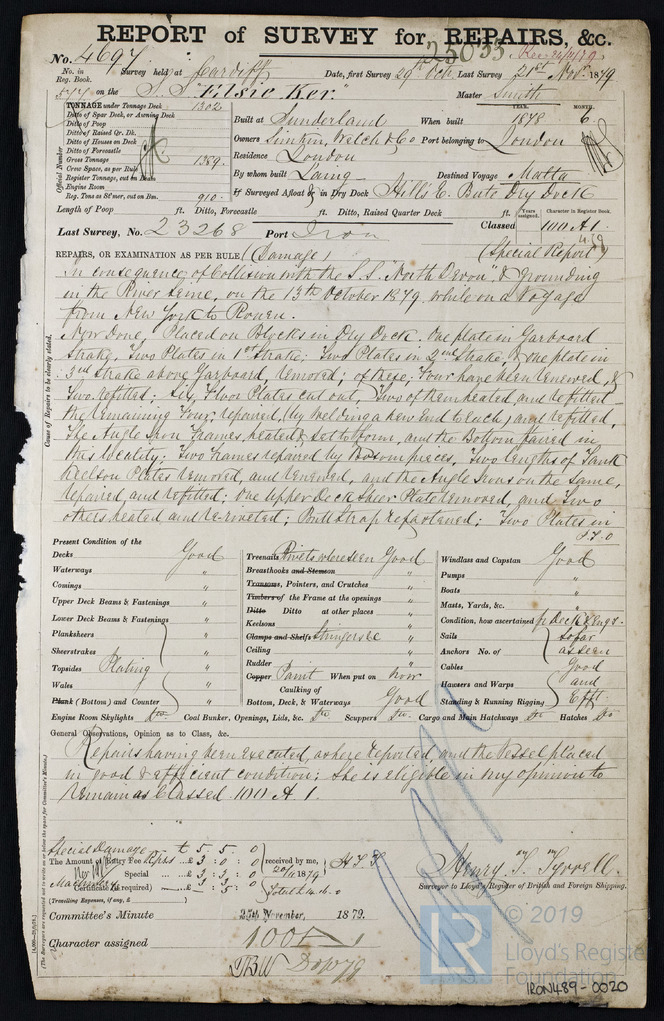 REPORT of SURVEY for REPAIRS, &c.
25033
No. 4697
No. in Reg. Book.
Survey held at Cardiff Date, first Survey 29th Octr Last Survey 21st Novr 1879
577 on the S.S. "Elsie Ker." Master Smith
TONNAGE under Tonnage Deck 1302
Ditto of Spar Deck, or Awning Deck
Ditto of Poop
Ditto of Raised Qr. Dk.
Ditto of Houses on Deck
Ditto of Forecastle
Gross Tonnage 1389
Crew Space, as per Rule
Register Tonnage, cut on Beam
Engine Room
Reg. Tons as St'mer, cut on Bm. 910
Official Number
Built at Sunderland When built YEAR. 1878 MONTH 6.
Owners Simkin, Welch & Co Port belonging to London
Residence London
By whom built Laing Destined Voyage Malta
If Surveyed Afloat & in Dry Dock Hill's E. Bute Dry Dock
Length of Poop ft. Ditto, Forecastle ft. Ditto, Raised Quarter Deck ft.
Years assigned. Character in Register Book.
Last Survey, No. 23268 Port Iron Classed 100 A1.
REPAIRS, OR EXAMINATION AS PER RULE (Damage) (Special Report)
In consequence of Collision with the S.S. "North Devon" & grounding
in the River Seine, on the 13th October 1879, while on a Voyage
from New York to Rouen.
Now Done. Placed on Blocks in Dry Dock. One plate in Garboard
Strake, Two Plates in 1st Strake; Two Plates in 2nd Strake, & one plate in
3rd Strake above Garboard, removed; of these, Four have been renewed, &
Two refitted; Six Floor Plates cut out, Two of them heated, and refitted
the remaining Four, repaired, (by welding a new End to each) and refitted,
The Angle Iron Frames heated & set to form, and the Bottom faired in
this locality; Two Frames repaired by Bosom pieces, Two lengths of Tank
Keelson Plates removed, and renewed, and the Angle Irons on the same,
repaired and refitted; One Upper Deck Sheer Plate removed, and Two
others heated and re-riveted; Butt Strap refastened; Two Plates in
P.T.O
Cause of Repairs to be clearly stated.
Present Condition of the
Decks Good
Waterways "
Comings "
Upper Deck Beams & Fastenings "
Lower Deck Beams & Fastenings "
Planksheers "
Sheerstrakes "
Topsides Plating "
Wales "
Plank (Bottom) and Counter "
Treenails Rivets where seen Good
Breasthooks and Stemson "
Transoms, Pointers, and Crutches "
Timbers of the Frame at the openings "
Ditto Ditto at other places "
Keelsons "
Clamps and Shelfs Stringers &c "
Ceiling "
Rudder "
Copper Paint When put on Now
Caulking of
Bottom, Deck, & Waterways Good
Windlass and Capstan Good
Pumps "
Boats "
Masts, Yards, &c. "
Condition, how ascertained
Sails so far
Anchors No. of as seen
Cables Good
Hawsers and Warps and
Standing & Running Rigging Efft
Engine Room Skylights Do Coal Bunker, Openings, Lids, &c. Do Scuppers Do Cargo and Main Hatchways Do Hatches Do
General Observations, Opinion as to Class, &c.
Repairs having been executed, as here reported, and the Vessel placed
in good & efficient condition; She is eligible in my opinion to
remain as Classed 100 A.1
Special Damage £ 5 . 5 . 0
The Amount of Entry Fee £ 3 : 0 : 0 received by me,
Special £ 3 : 3 : 0 20/11 1879
Certificate (if required) £ : 5 :
(Travelling Expenses, if any, £ )
Henry Tyrrell.
Surveyor to Lloyd's Register of British and Foreign Shipping.
Committee's Minute 25th November, 1879.
Character assigned 100 A 1
(The Surveyors are requested not to write on or below the space for Committee's Minute.)
LR © 2019
Lloyd's Register
Foundation
IRON489-0020